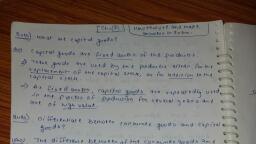 What are capital goods?
Capital goods are fixed assets of the producers.
These goods are used by the producer either for the
replacement of the capital stock, or for addition to the
capital stock.
→ As fixed assets, capital goods are repeatedly used
in the process of production for several years and
are of high value.
Differentiate between consumer goods and capital
goods?
The difference between the consumer goods and